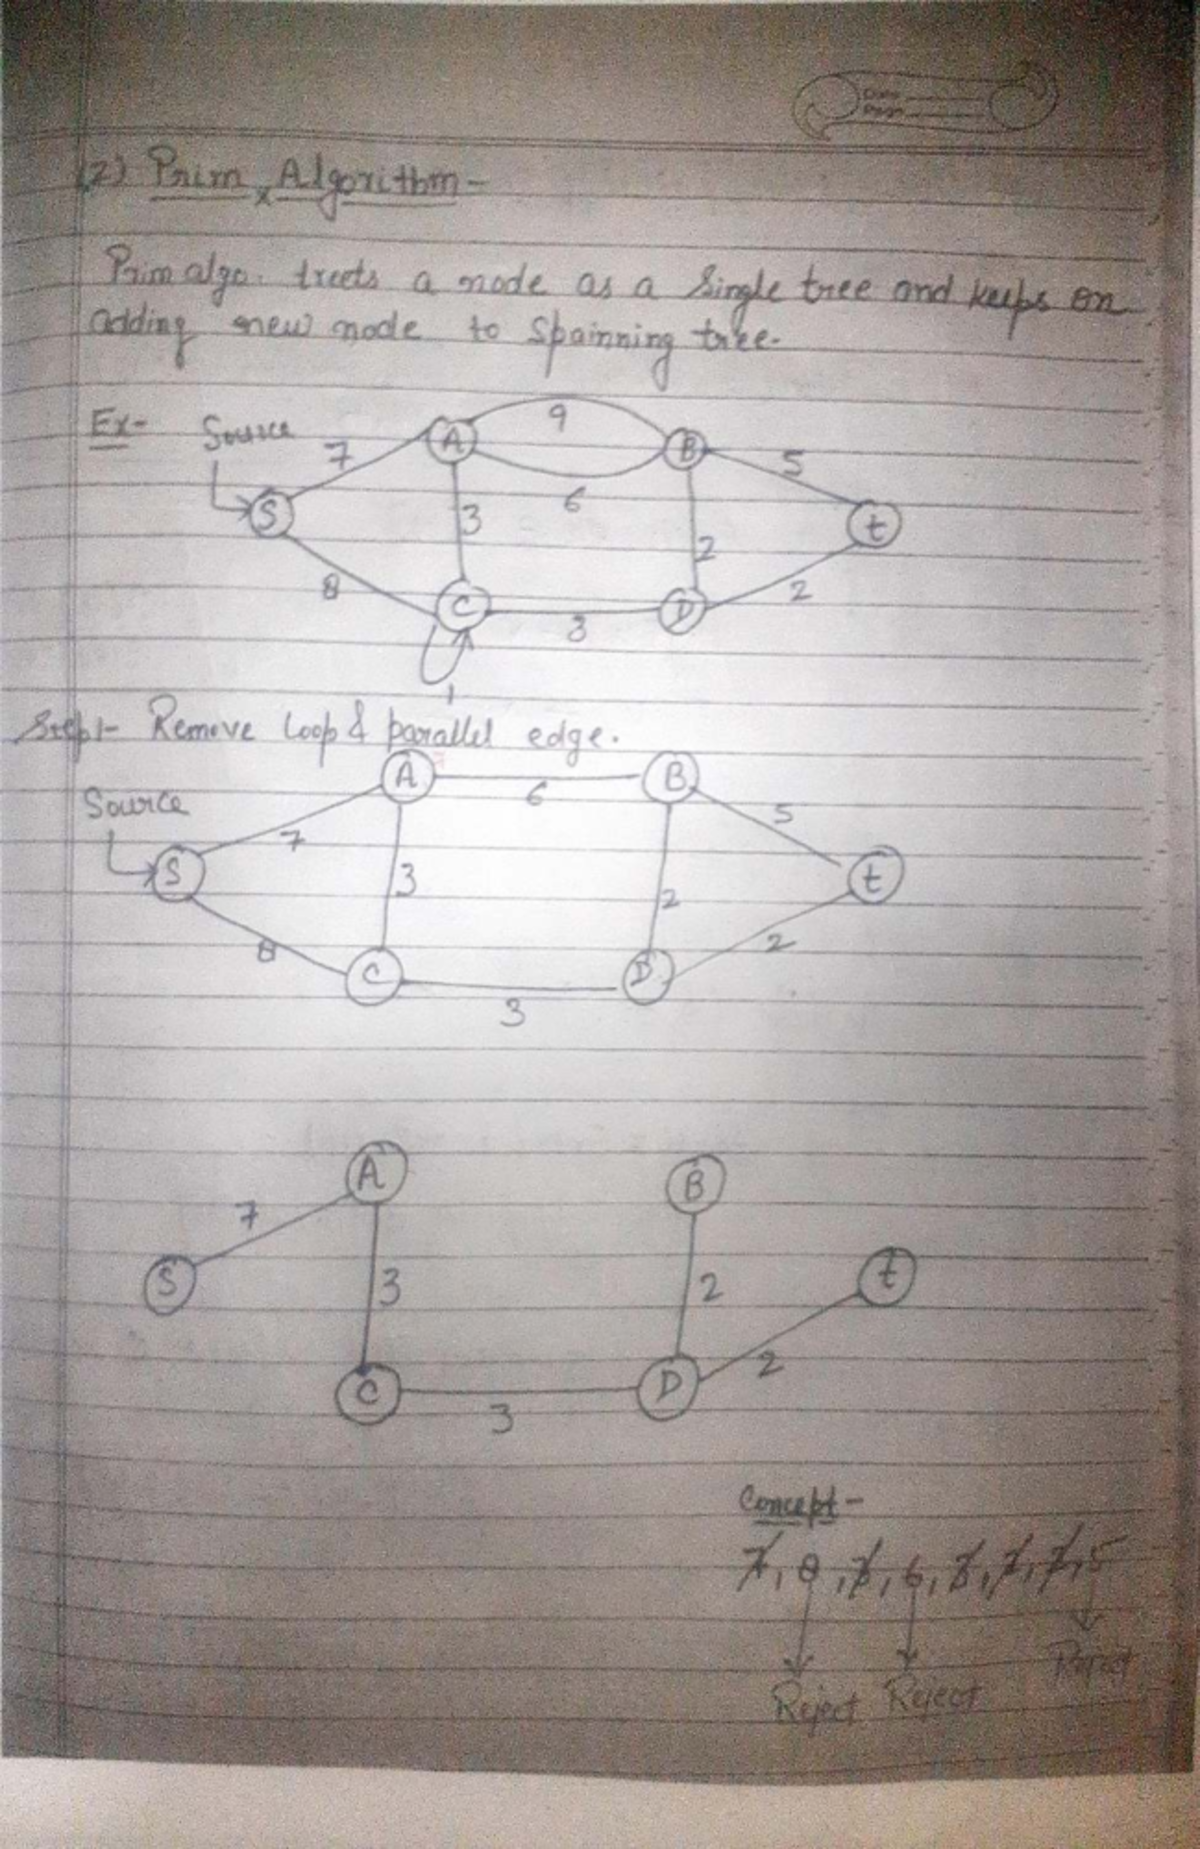 Date
Page
(2) Prim Algorithm -
Prim algo. treets a node as a single tree and keeps on
adding new node to spainning tree.
Ex- Source
7 A 9 B 5
S 3 6 2 t
8 C 3 D 2
1
Step1- Remove loop & parallel edge.
A 6 B
Source 7 5
S 3 2 t
8 C 3 D 2
A B
7
S 3 2 t
C 3 D 2
Concept -
7, 8, 3, 6, 3, 2, 2, 5
Reject Reject Reject